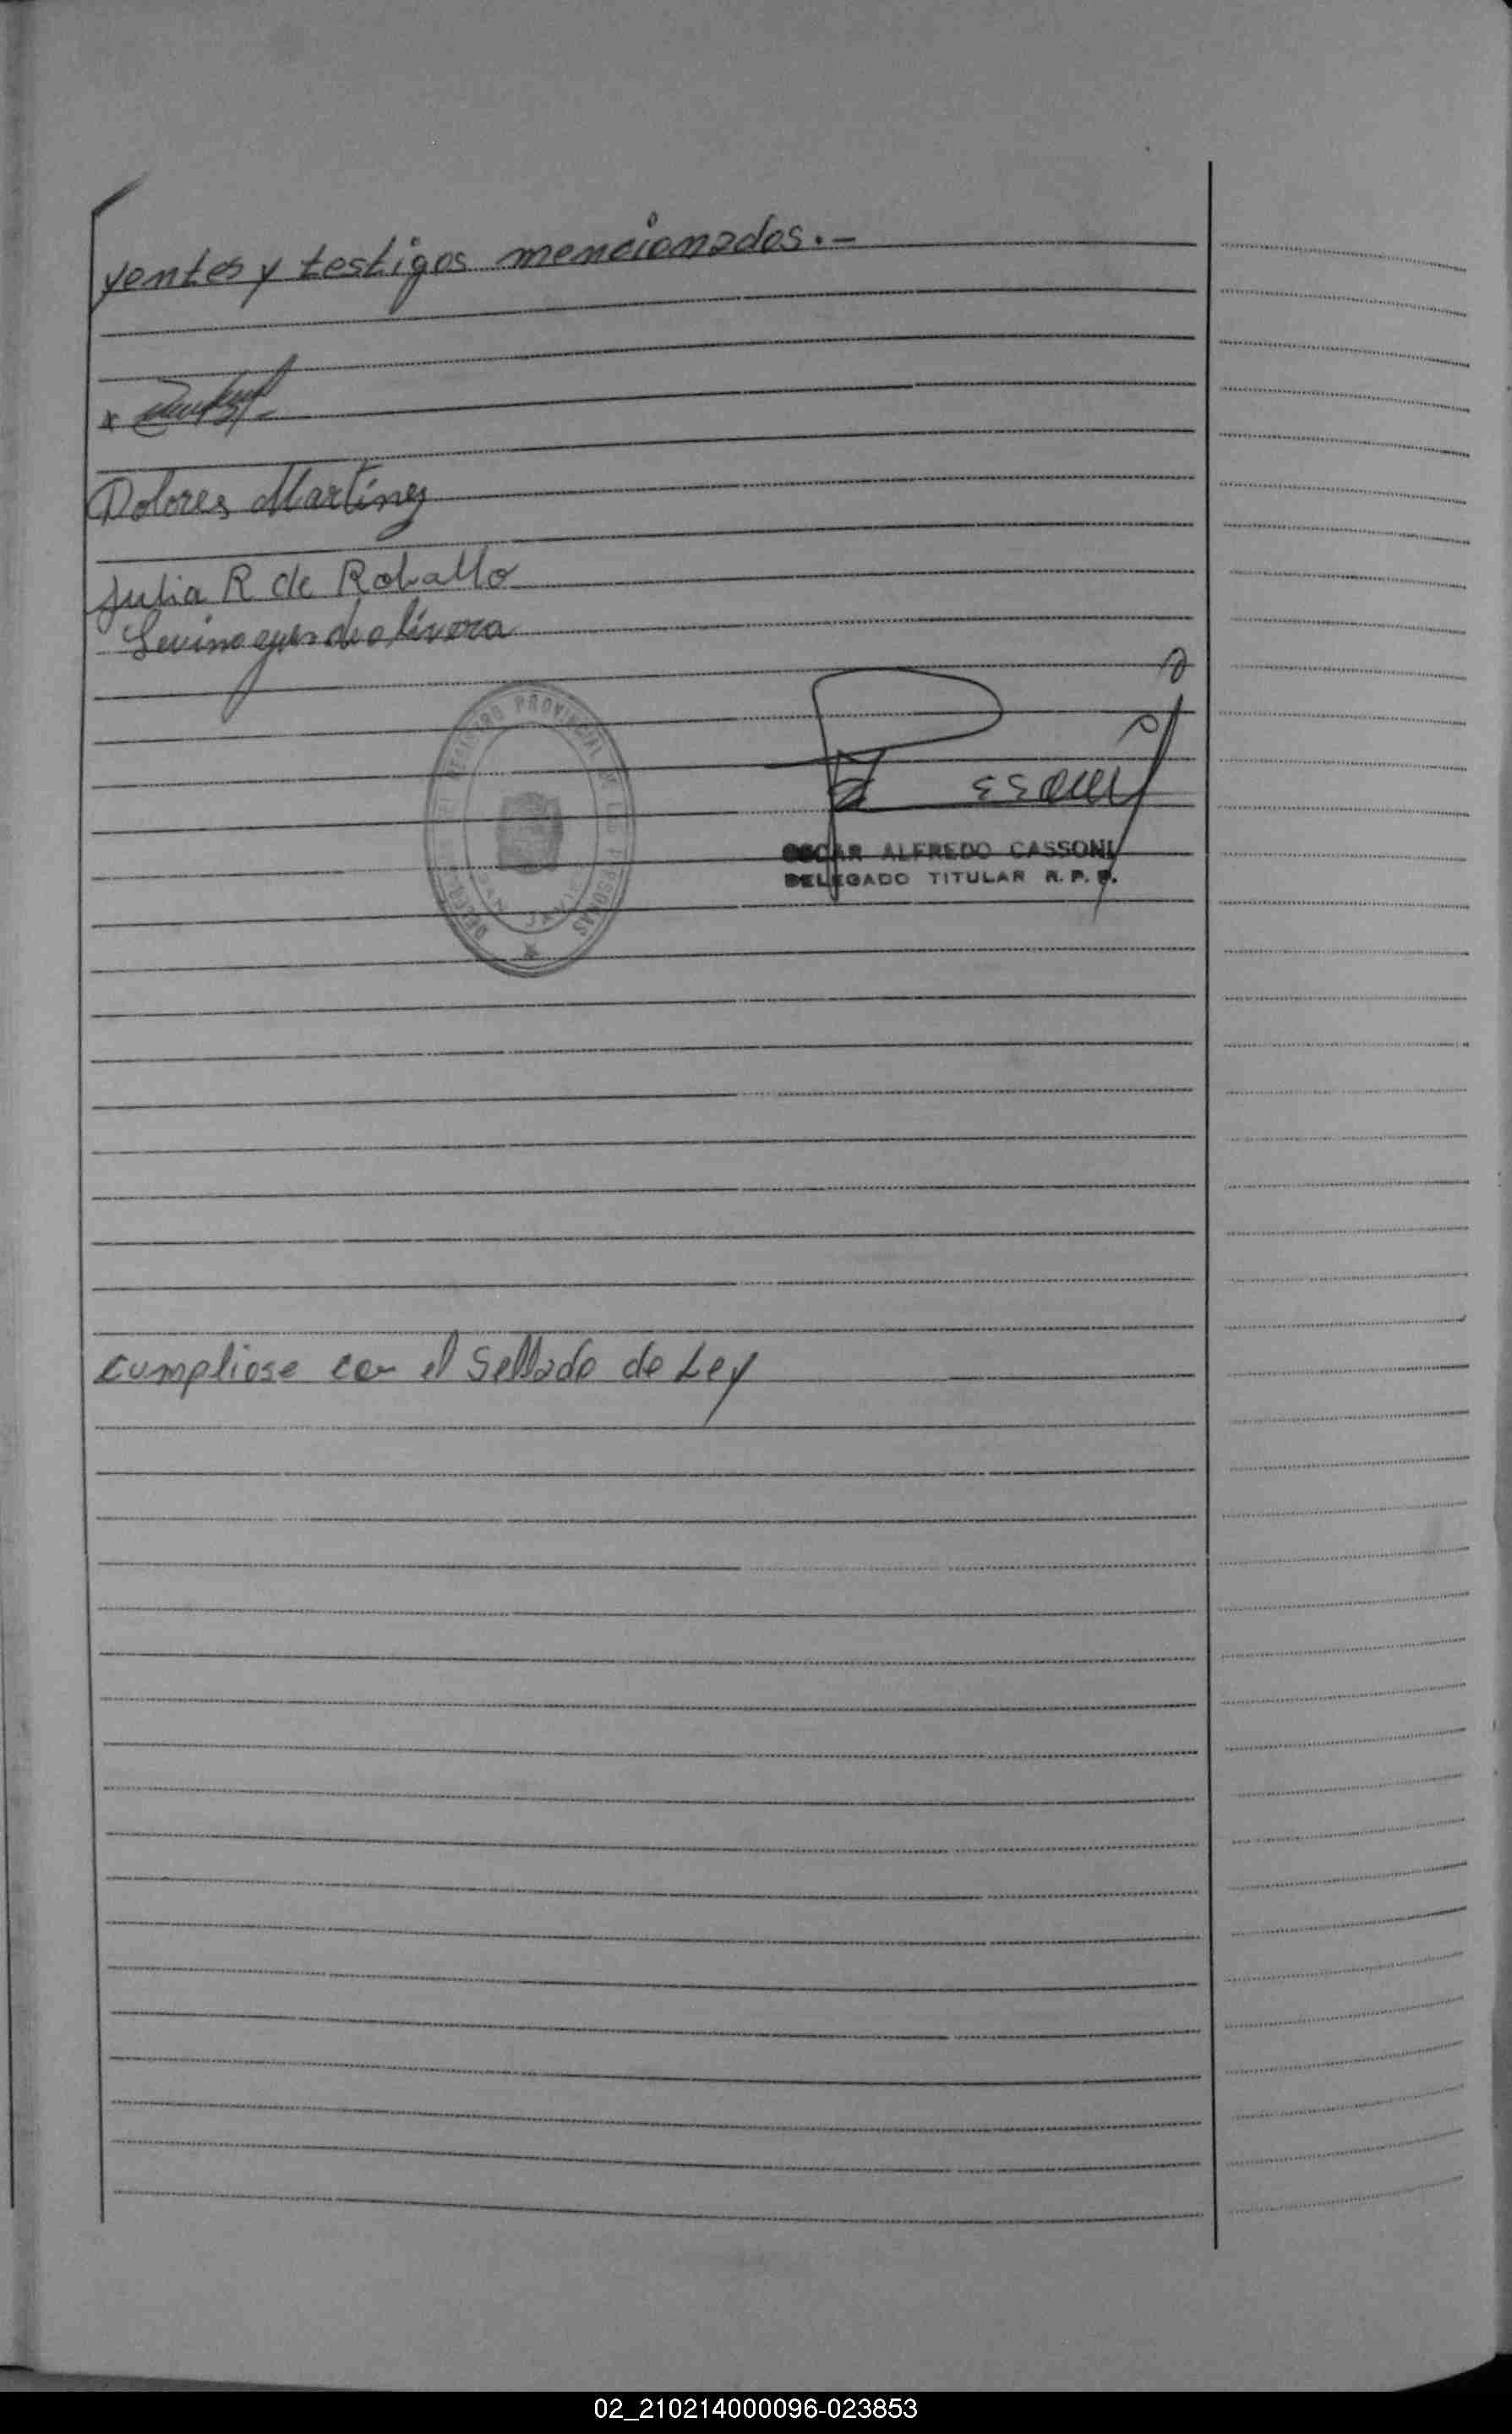 yentes y testigos mencionados.-
Dolores Martinez
Julia R de Roballo
de olivera
REGISTRO PROVINCIAL DE LAS PERSONAS
OSCAR ALFREDO CASSONI
DELEGADO TITULAR R. P. P.
cumpliose con el Sellado de Ley
02_210214000096-023853